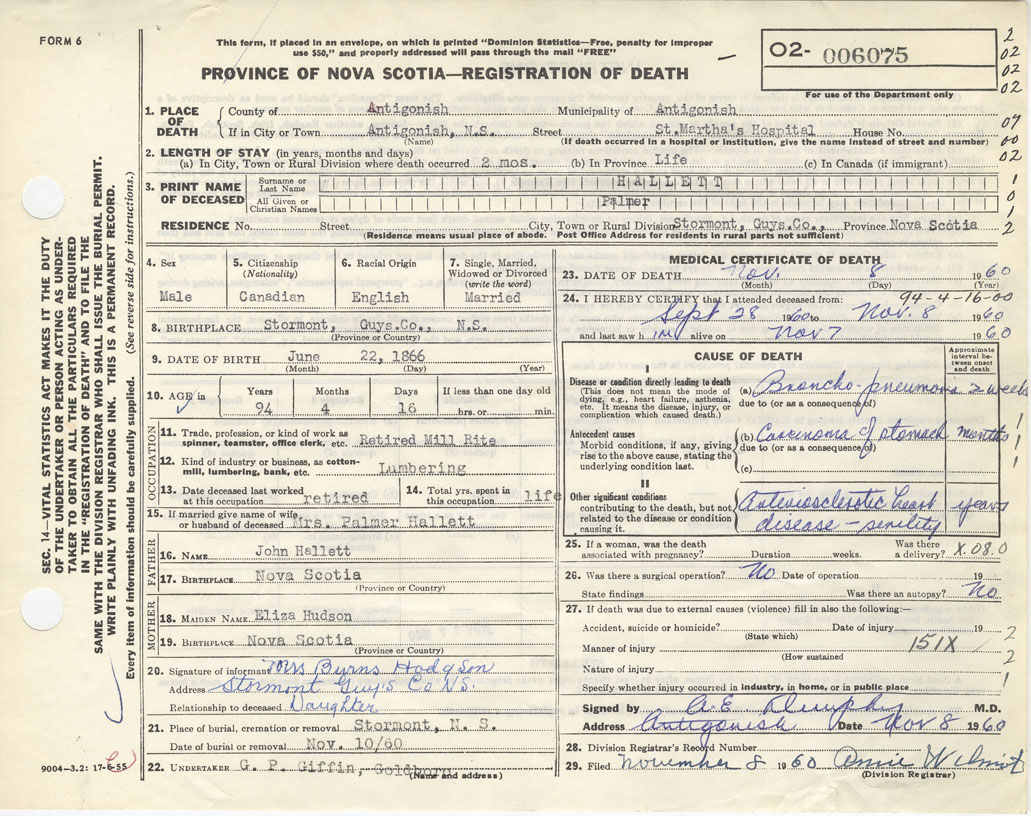 FORM 6
This form, if placed in an envelope, on which is printed "Dominion Statistics—Free, penalty for improper
use $50," and properly addressed will pass through the mail "FREE"
PROVINCE OF NOVA SCOTIA—REGISTRATION OF DEATH
O2- 006075
For use of the Department only
2
02
02
02
07
00
02
1
0
1
2
SEC. 14—VITAL STATISTICS ACT MAKES IT THE DUTY
OF THE UNDERTAKER OR PERSON ACTING AS UNDER-
TAKER TO OBTAIN ALL THE PARTICULARS REQUIRED
IN THE "REGISTRATION OF DEATH" AND TO FILE THE
SAME WITH THE DIVISION REGISTRAR WHO SHALL ISSUE THE BURIAL PERMIT.
WRITE PLAINLY WITH UNFADING INK. THIS IS A PERMANENT RECORD.
Every item of information should be carefully supplied. (See reverse side for instructions.)
1. PLACE OF DEATH
County of Antigonish Municipality of Antigonish
If in City or Town Antigonish, N.S. Street St.Martha's Hospital House No.
(Name) (If death occurred in a hospital or institution, give the name instead of street and number)
2. LENGTH OF STAY (in years, months and days)
(a) In City, Town or Rural Division where death occurred 2 mos. (b) In Province Life (c) In Canada (if immigrant)
3. PRINT NAME OF DECEASED
Surname or Last Name HALLETT
All Given or Christian Names Palmer
RESIDENCE No. Street City, Town or Rural Division Stormont, Guys.Co., Province Nova Scotia
(Residence means usual place of abode. Post Office Address for residents in rural parts not sufficient)
4. Sex 5. Citizenship (Nationality) 6. Racial Origin 7. Single, Married, Widowed or Divorced (write the word)
Male Canadian English Married
8. BIRTHPLACE Stormont, Guys.Co., N.S.
(Province or Country)
9. DATE OF BIRTH June 22, 1866
(Month) (Day) (Year)
10. AGE in Years Months Days If less than one day old
94 4 16 hrs. or min.
OCCUPATION
11. Trade, profession, or kind of work as
spinner, teamster, office clerk, etc. Retired Mill Rite
12. Kind of industry or business, as cotton-
mill, lumbering, bank, etc. Lumbering
13. Date deceased last worked at this occupation retired 14. Total yrs. spent in this occupation life
15. If married give name of wife
or husband of deceased Mrs. Palmer Hallett
FATHER
16. NAME John Hallett
17. BIRTHPLACE Nova Scotia
(Province or Country)
MOTHER
18. MAIDEN NAME Eliza Hudson
19. BIRTHPLACE Nova Scotia
(Province or Country)
20. Signature of informant Mrs Burns Hodgson
Address Stormont Guys Co N.S.
Relationship to deceased Daughter
21. Place of burial, cremation or removal Stormont, N. S.
Date of burial or removal Nov. 10/60
22. UNDERTAKER G. P. Giffin, Goldboro
(Name and address)
9004—3.2: 17-6-55
MEDICAL CERTIFICATE OF DEATH
23. DATE OF DEATH Nov. 8 1960
(Month) (Day) (Year)
94-4-16-00
24. I HEREBY CERTIFY that I attended deceased from:
Sept 28 1960 to Nov. 8 1960
and last saw him alive on Nov 7 1960
CAUSE OF DEATH
Approximate interval between onset and death
I
Disease or condition directly leading to death
(This does not mean the mode of dying, e.g., heart failure, asthenia, etc. It means the disease, injury, or complication which caused death.)
(a) Broncho-pneumonia 2 weeks
due to (or as a consequence of)
Antecedent causes
Morbid conditions, if any, giving rise to the above cause, stating the underlying condition last.
(b) Carcinoma of stomach months
due to (or as a consequence of)
(c)
1
1
1
II
Other significant conditions
contributing to the death, but not related to the disease or condition causing it.
Arteriosclerotic heart years
disease - senility
25. If a woman, was the death associated with pregnancy? Duration weeks. Was there a delivery? X.08.0
26. Was there a surgical operation? No Date of operation 19
State findings Was there an autopsy? No
27. If death was due to external causes (violence) fill in also the following:—
Accident, suicide or homicide? Date of injury 19
(State which)
Manner of injury 151X
(How sustained)
Nature of injury
2
2
1
Specify whether injury occurred in industry, in home, or in public place
Signed by A E Dunphy M.D.
Address Antigonish Date Nov 8 1960
28. Division Registrar's Record Number
29. Filed November 8 1960 Annie
(Division Registrar)